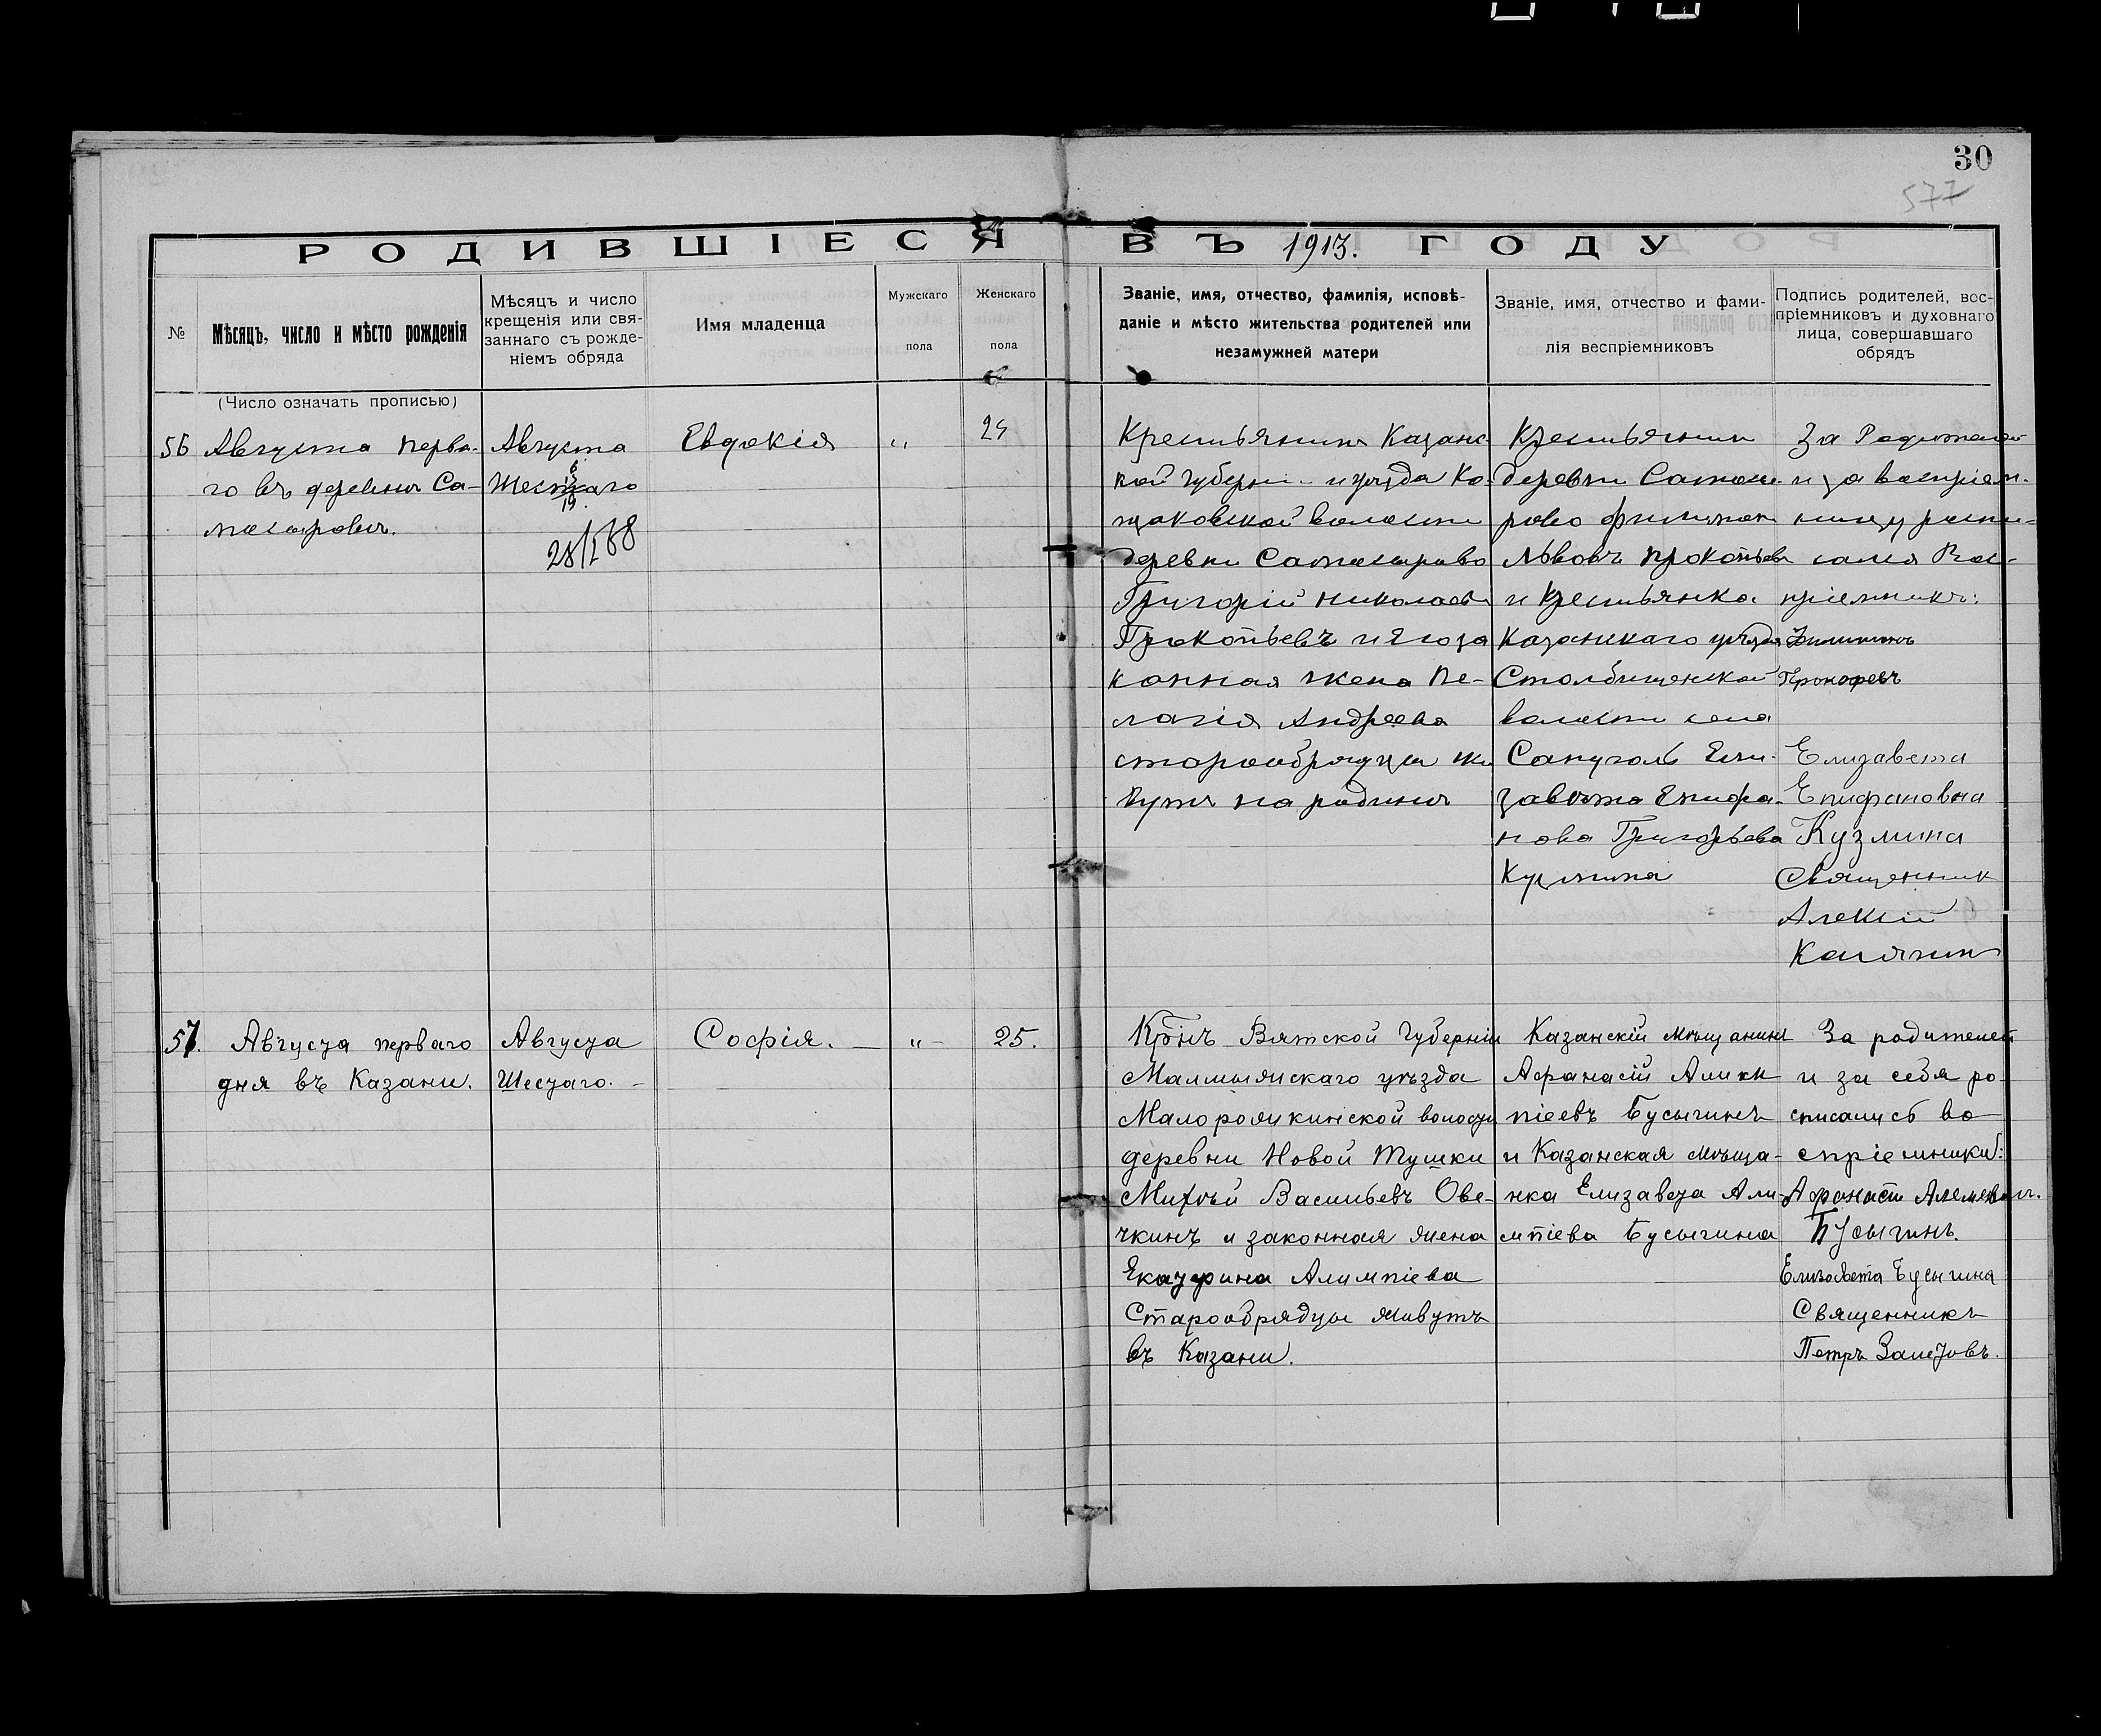 30
577
РОДИВШІЕСЯ ВЪ 1913. ГОДУ
№
Мѣсяцъ, число и мѣсто рожденія
Мѣсяцъ и число
крещенія или свя-
заннаго съ рожде-
ніемъ обряда
Имя младенца
Мужскаго
пола
Женскаго
пола
Званіе, имя, отчество, фамилія, исповѣ-
даніе и мѣсто жительства родителей или
незамужней матери
Званіе, имя, отчество и фами-
лія веспріемниковъ
Подпись родителей, вос-
пріемниковъ и духовнаго
лица, совершавшаго
обрядъ
(Число означать прописью)
56
Августа перва-
го въ деревнѣ Са-
Августа
Шестаго
6
19.
28/I 88
Евдокія
„
24
Крестьянинъ Казанс-
кой губерніи и уѣзда Ко-
щаковской волости
деревни
Григорій Николаевъ
Прокопьевъ и его за
конная жена Пе-
лагія Андреева
старообрядцы жи
вутъ на родинѣ
Крестьянин
деревни
Львовъ Прокопьев
и крестьянка
Казанскаго уѣзда
Столбищенской
волости села
Сапуголь Ели-
завѣта Епифа-
нова Григорьева
Кузмина
За Родителей
и за воспріем-
ницу распи-
сался Вос-
пріемникъ:
Филимонъ
Прокофевъ
Елизавета
Епифановна
Кузмина
Священник
Алексій
Калягин
57.
Августа перваго
дня въ Казани.
Августа
Шестаго.
Софія. —
„ –
25.
Кр̃нъ Вятской Губерніи
Малмыжскаго уѣзда
Малорожкинской волости
деревни Новой Тушки
Михѣй Васильевъ Ове-
чкинъ и законная жена
Екатерина Алимпіева
Старообрядцы живутъ
въ Казани.
Казанскій мѣщанинъ
Афанасій Алим
піевъ Бусыгинъ
и Казанская мѣща-
нка Елизавета Али-
мпіева Бусыгина
За родителей
и за себя ро-
списались во
спріемники:
Афонасій
Бусыгинъ.
Елизавета Бусыгина
Священникъ
Петръ Залетовъ.